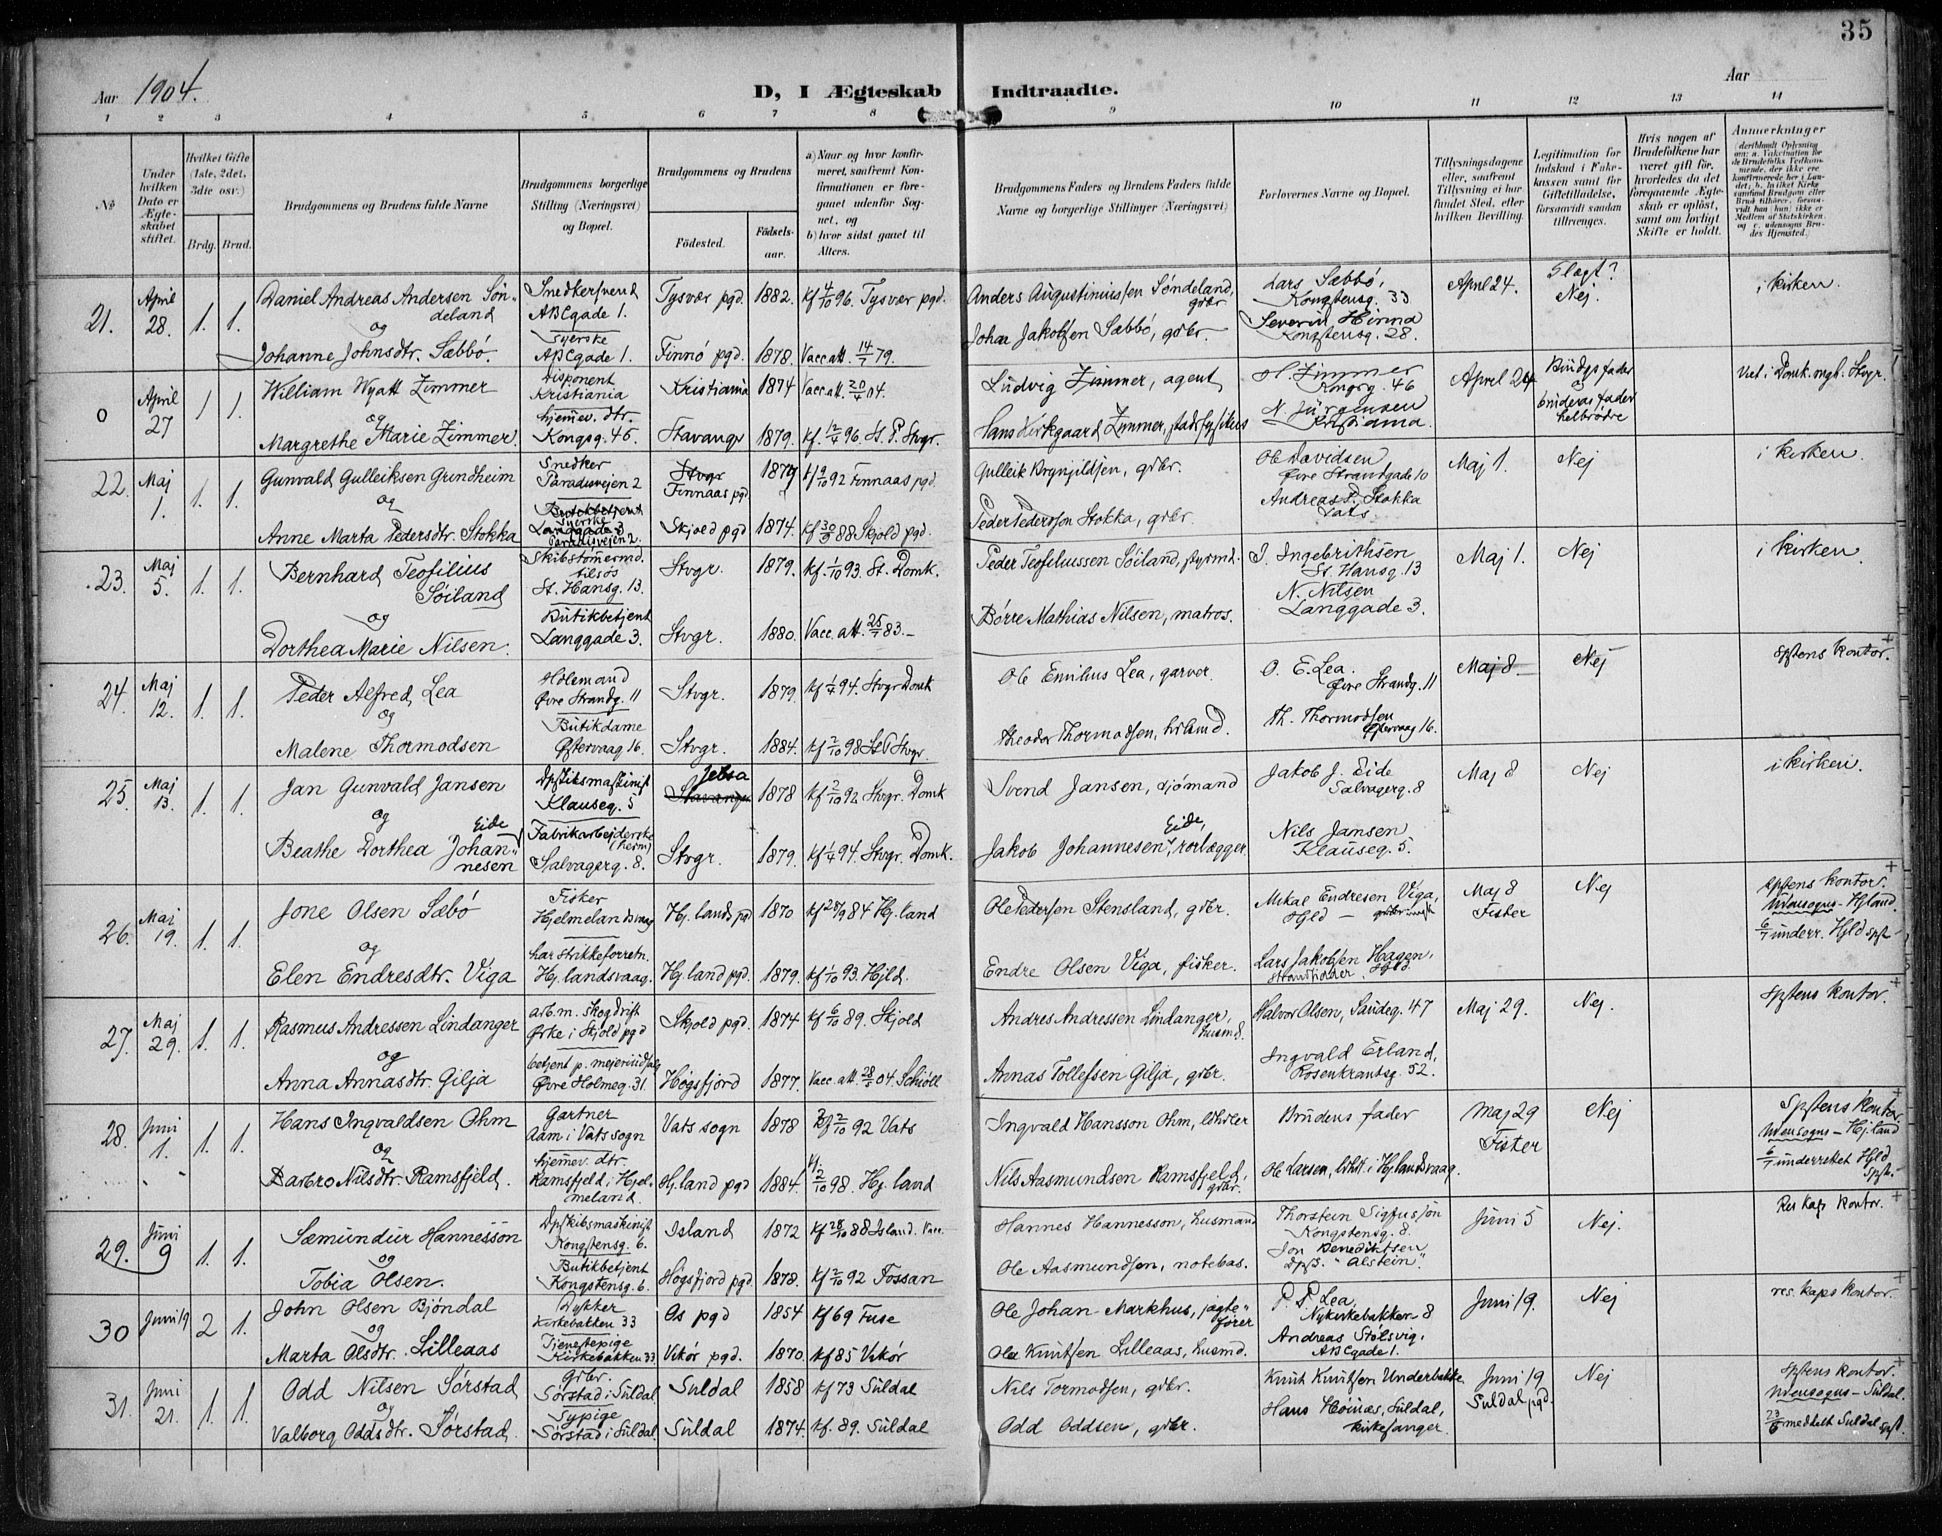 35
Aar 1904.
D, I Ægteskab Indtraadte.
Aar
1 2 3 4 5 6 7 8 9 10 11 12 13 14
№
Under hvilken Dato er Ægteskabet stiftet.
Hvilket Gifte (1ste, 2det, 3die osv.)
Brdg. Brud.
Brudgommens og Brudens fulde Navne
Brudgommens borgerlige Stilling (Næringsvei) og Bopæl.
Brudgommens og Brudens
Födested. Födselsaar.
a) Naar og hvor konfirmeret, saafremt Konfirmationen er foregaaet udenfor Sognet, og
b) hvor sidst gaaet til Alters.
Brudgommens Faders og Brudens Faders fulde Navne og borgerlige Stillinger (Næringsvei)
Forlovernes Navne og Bopæl.
Tillysningsdagene eller, saafremt Tillysning ei har fundet Sted, efter hvilken Bevilling.
Legitimation for Indskud i Fakkassen samt for Giftetilladelse, forsaavidt saadan tiltrænges.
Hvis nogen af Brudefolkene har været gift för, hvorledes da det foregaaende Ægteskab er oplöst, samt om lovligt Skifte er holdt.
Anmærkninger
21. April 28. 1. 1.
Daniel Andreas Andersen Søndeland
og
Johanne Johnsdtr. Sæbbö.
Snedkersvend
ABCgade 1.
Syerske
ABCgade 1.
Tysvær pgd. 1882. Kf 4/10 96. Tysvær pgd.
Finnö pgd. 1878. Vacc att. 14/7 79.
Anders Augustinussen Söndeland, gdbr
Johan Jakobsen Sæbbö, gdbr.
Lars Sæbbö, Kongstensg. 33
Severin Hinna Kongstensg. 28.
April 24. Slægt? Nej. i kirken.
0 April 27 1 1.
William Wyatt Zimmer
og
Margrethe Marie Zimmer.
Disponent
Kristiania
hjemev. dtr.
Kongsg. 46.
Kristiania 1874 Vacc att. 20/4 04.
Stavangr 1879. Kf. 12/4 96 St. P. Stvgr.
Ludvig Zimmer, agent
Hans Kirkgaard Zimmer, stadsfysikus
H. Zimmer Kongsg. 46
N. Jürgensen Kristiania.
April 24 Brudgs fader og brudens fader helbrödre
Viet i Domk. mgh. Stvgr.
22. Maj 1. 1. 1.
Gunvald Gulleiksen Grundheim
og
Anne Marta Pedersdtr. Stokka
Snedker
Paradisvejen 2
Butikbetjent
Syerske
Langgade 3
Paradisvejen 2.
Stvgr
Finnaas pgd 1874 kf 9/10 92 Finnaas pgd.
Skjold pgd 1874. kf 30/9 88 Skjold pgd.
Gulleik Brynjildsen, gdbr.
Peder Pedersson Stokka, gdbr.
Ole Davidsen Øvre Strandgade 10
Andreas P. Stokka
Maj 1. Nej i kirken.
23. Maj 5. 1. 1.
Bernhard Teofilius Söiland
og
Dorthea Marie Nilsen.
Skibstömermd. tilsös
St. Hansg. 13.
Butikbetjent
Langgade 3.
Stvgr. 1879. Kf. 1/10 93. St. Domk.
Stvgr. 1880. Vacc. att. 25/1 83.
Peder Teofiliussen Söiland, styrmd.
Börre Mathias Nilsen, matros.
J. Ingebrithsen St. Hansg. 13
N. Nilsen Langgade 3.
Maj 1. Nej i kirken.
24. Maj 12. 1. 1.
Peder Alfred Lea
og
Malene Thormodsen
Øvre Strandg. 11
Butikdame
Østervaag 16.
Stvgr. 1879. Kf 1/4 94. Stvgr Domk
Stvgr. 1884. Kf 2/10 98 St P Stvgr.
Ole Emilius Lea, garver.
Theodor Thormodsen,
O. E. Lea. Øvre Strandg. 11
Th. Thormodsen Østervaag 16.
Maj 8 Nej Spstens kontor.
25. Maj 13. 1. 1.
Jan Gunvald Jansen
og
Beathe Dorthea Johannesen Eide
Dpskibsmaskinist
Klauseg. 5
Fabrikarbejderske
(herm)
Salvagerg. 8.
Jelsa
Stavanger 1878 Kf 2/10 92 Stvgr. Domk
Stvgr. 1879. Kf 1/4 94. Stvgr. Domk.
Svend Jansen, sjömand
Jakob Johannesen Eide, rorlægger
Jakob J. Eide Salvagerg. 8
Nils Jansen Klauseg. 5.
Maj 8 Nej i kirken.
26. Maj 19. 1. 1.
Jone Olsen Sæbö
og
Elen Endresdtr. Viga
Fisker
Hjelmelandsvaag
har strikkeforretn.
Hj. landsvaag.
Hj. lands pgd 1870 Kf 28/9 84 Hj. land
Hj. land pgd. 1879. Kf 1/10 93. Hjld.
Ole Pedersen Stensland, gdbr.
Endre Olsen Viga, fisker.
Mikal Endresen Viga, Hjld
Lars Jakobsen Hagen, Strandsidder Hjld.
Maj 8 Fister Nej
Spstens kontor.
Udensogns - Hjland.
6/7 underr. Hjld spst
27. Maj 29. 1. 1.
Rasmus Andressen Lindanger
og
Anna Annasdtr. Gilja
arb. m. skogdrift
Ørke i Skjold pgd
betjent p. mejeriudsalg
Øvre Holmeg. 31.
Skjold pgd. 1874 Kf 6/10 89. Skjold
Högsfjord 1877. Vacc. att. 28/5 04. Schiöll
Andres Andressen Lindanger, husmd.
Annas Tollefsen Gilja, gdbr.
Halvor Olsen, Sandeg. 47
Ingvald Erland, Rosenkrantsg. 52.
Maj 29. Nej. Spstens kontor.
28. Juni 1. 1. 1.
Hans Ingvaldsen Ohm
og
Barbro Nilsdtr. Ramsfjeld.
Gartner
Aam i Vats sogn
hjemev. dtr.
Ramsfjeld i Hjelmeland.
Vats sogn 1878 Kf 2/10 92 Vats
Hj. land pgd 1884. kf. 2/10 98. Hj. land
Ingvald Hansson Ohm, ldhdler
Nils Aasmundsen Ramsfjeld, gdbr.
Brudens fader
Ole Larsen, ldhdl. i Hjlandsvaag.
Maj 29 Fister Nej
Spstens kontor.
Udensogns - Hj. land
6/7 underrettet Hjld spst.
29. Juni 9 1. 1.
Sæmundur Hannesson
og
Tobia Olsen.
Dpskibsmaskinist
Kongstensg. 6.
Butikbetjent
Kongstensg. 6
Island 1872 Kf 28/10 88 Island. Vacc.
Högsfjord pgd. 1878. Kf 2/10 92 Fossan
Hannes Hannesson, husmand
Ole Aasmundsen, notebas.
Thorstein Sigfusson Kongstensg. 8.
Jon Benediktsen Dpsk. "Alstein".
Juni 5 Nej. Res kaps kontor.
30 Juni 19 2 1.
John Olsen Bjöndal
og
Marta Olsdtr. Lilleaas
Dykker
Kirkebakken 33
Tjenestepige
Kirkebakken 33.
Os pgd 1854 Kf 69 Fuse
Vikör pgd. 1870. Kf 85 Vikör
Ole Johan Markhus, jægtefører
Ole Knutsen Lilleaas, husmd.
P. P. Lea, Nykirkebakken 8
Andreas Stölsvig, ABCgade 1.
Juni 19. Nej res. kaps kontor.
31. Juni 21. 1. 1.
Odd Nilsen Sörstad
og
Valborg Oddsdtr. Sörstad.
Gdbr.
Sörstad i Suldal
Sypige
Sörstad i Suldal.
Suldal 1858 Kf 73 Suldal
Suldal 1874. Kf. 89. Suldal
Nils Tormodsen, gdbr.
Odd Oddsen, gdbr.
Knut Knutsen Underbakke
Hans Höinæs, Suldal, kirkesanger.
Juni 19 Suldal pgd. Nej
Spstens kontor.
Udensogns - Suldal.
23/6 meddelt Suldal spst.